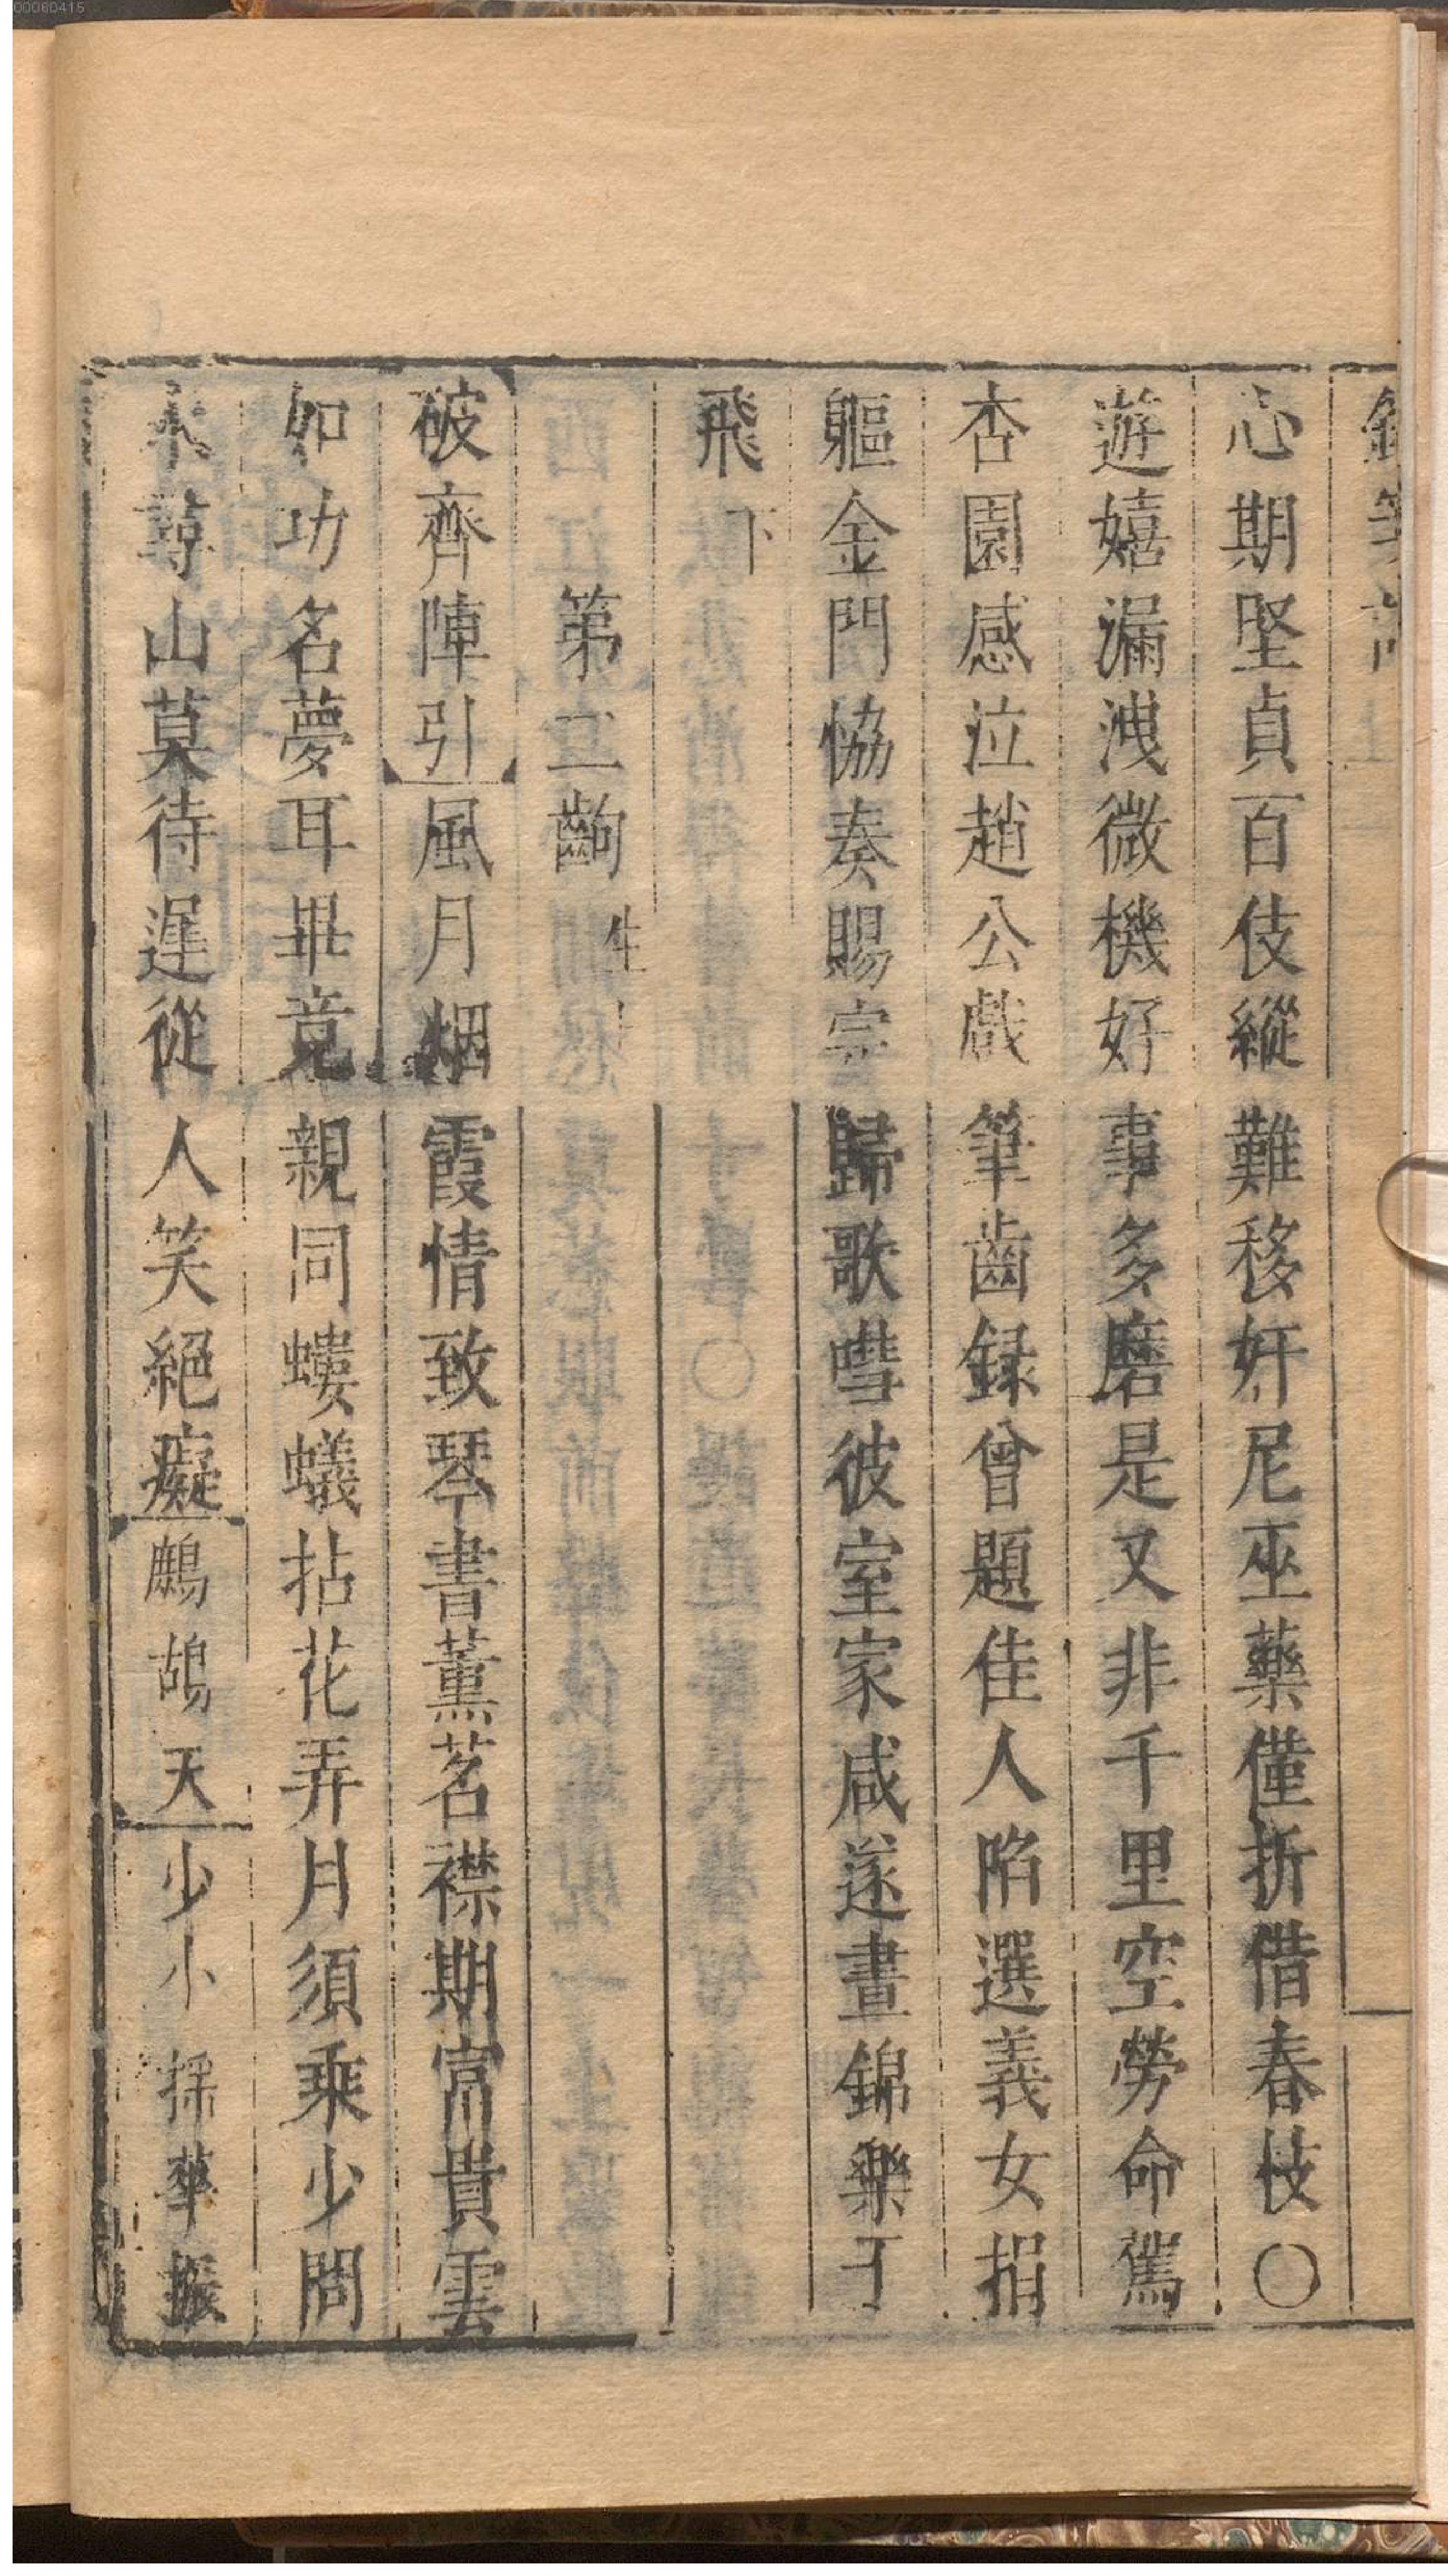 心期堅貞百伎縱難移奸尼巫藥僅折借春枝○
遊嬉漏洩微機好事多磨是又非千里空勞命駕
杏園感泣趙公戲筆齒録曾題佳人陷選義女捐
軀金門恊奏賜宗歸歌嘒彼室家咸遂晝錦樂于
飛下
第二齣生
破齊陣引風月烟霞情致琴書薰茗襟期富貴雲
如功名夢耳畢竟親同螻蟻拈花弄月須乘少問
水尋山莫待遲從人笑絕癡鷓鴣天少小採華振
00060415